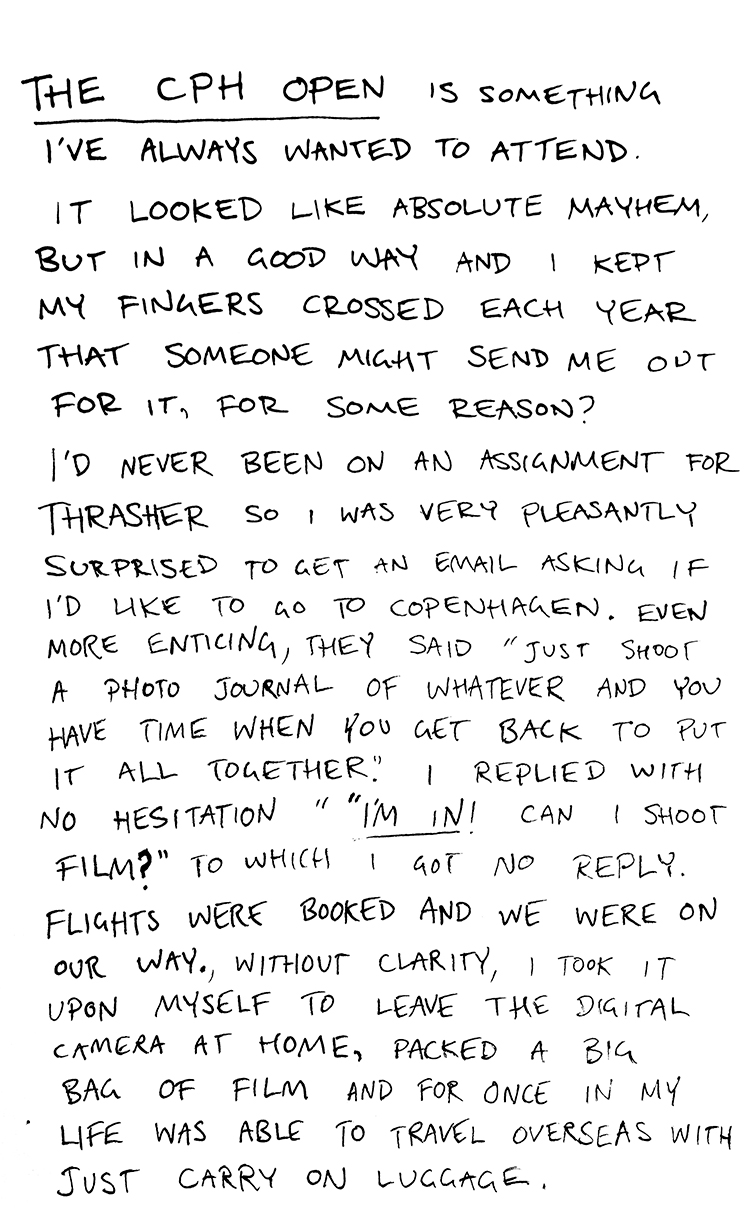 THE CPH OPEN IS SOMETHING
I'VE ALWAYS WANTED TO ATTEND.
IT LOOKED LIKE ABSOLUTE MAYHEM,
BUT IN A GOOD WAY AND I KEPT
MY FINGERS CROSSED EACH YEAR
THAT SOMEONE MIGHT SEND ME OUT
FOR IT, FOR SOME REASON?
I'D NEVER BEEN ON AN ASSIGNMENT FOR
THRASHER SO I WAS VERY PLEASANTLY
SURPRISED TO GET AN EMAIL ASKING IF
I'D LIKE TO GO TO COPENHAGEN. EVEN
MORE ENTICING, THEY SAID "JUST SHOOT
A PHOTO JOURNAL OF WHATEVER AND YOU
HAVE TIME WHEN YOU GET BACK TO PUT
IT ALL TOGETHER." I REPLIED WITH
NO HESITATION " "I'M IN! CAN I SHOOT
FILM?" TO WHICH I GOT NO REPLY.
FLIGHTS WERE BOOKED AND WE WERE ON
OUR WAY., WITHOUT CLARITY, I TOOK IT
UPON MYSELF TO LEAVE THE DIGITAL
CAMERA AT HOME, PACKED A BIG
BAG OF FILM AND FOR ONCE IN MY
LIFE WAS ABLE TO TRAVEL OVERSEAS WITH
JUST CARRY ON LUGGAGE.